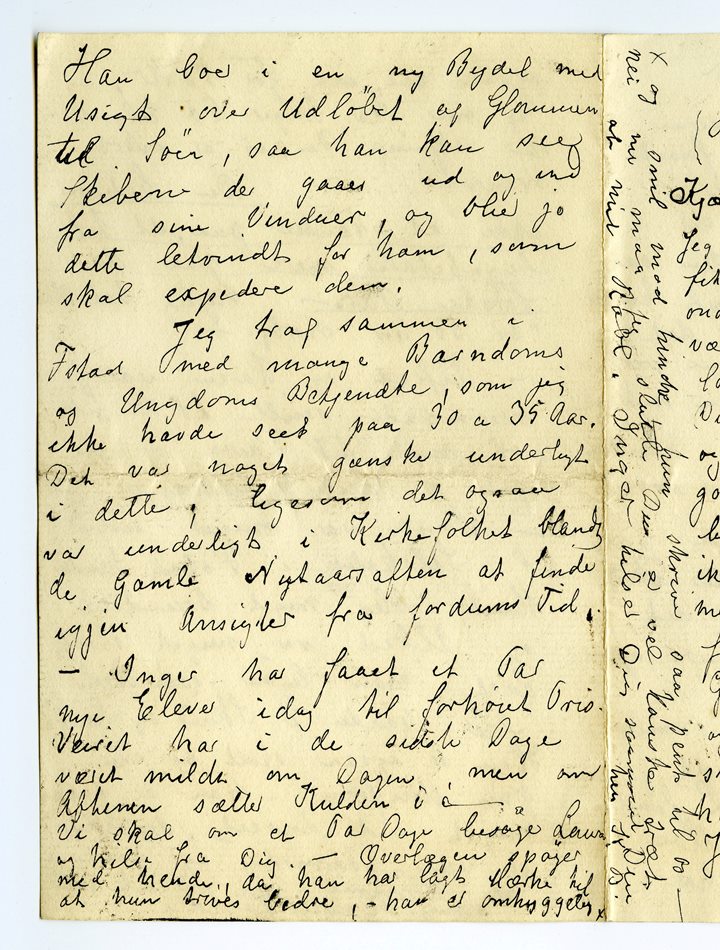 Han boer i en ny Bydel med
Udsigt over Udløbet af Glommen
til Söen, saa han kan see
Skibene der gaaer ud og ind
fra sine Vinduer, og blir jo
dette letvindt for ham, som
skal expedere dem.
Jeg traf sammen i
Fstad med mange Barndoms
og Ungdoms Bekjendte, som jeg
ikke havde seet paa 30 a 35 Aar.
Det var noget ganske underligt
i dette, ligesom det ogsaa
var underligt i Kirkefolket blandt
de Gamle Nytaarsaften at finde
igjen Ansigter fra fordums Tid.
– Inger har faaet et Par
nye Elever idag til forhöiet Pris.
Veiret har i de sidste Dage
været mildt om Dagen, men om
Aftenen sætter Kulden i
Vi skal om et Par Dage besöge Laura
og hilse fra Dig. – Overlægen spöger
med hende, da han har lagt Mærke til
at hun trives bedre, – han er omhyggelig x
x og snil mod hende, hun skrev saa pent til os –
nei nu maa jeg slutte Du er vel kanske træt
at mit Rabl. Inger hilser Dig saameget Din